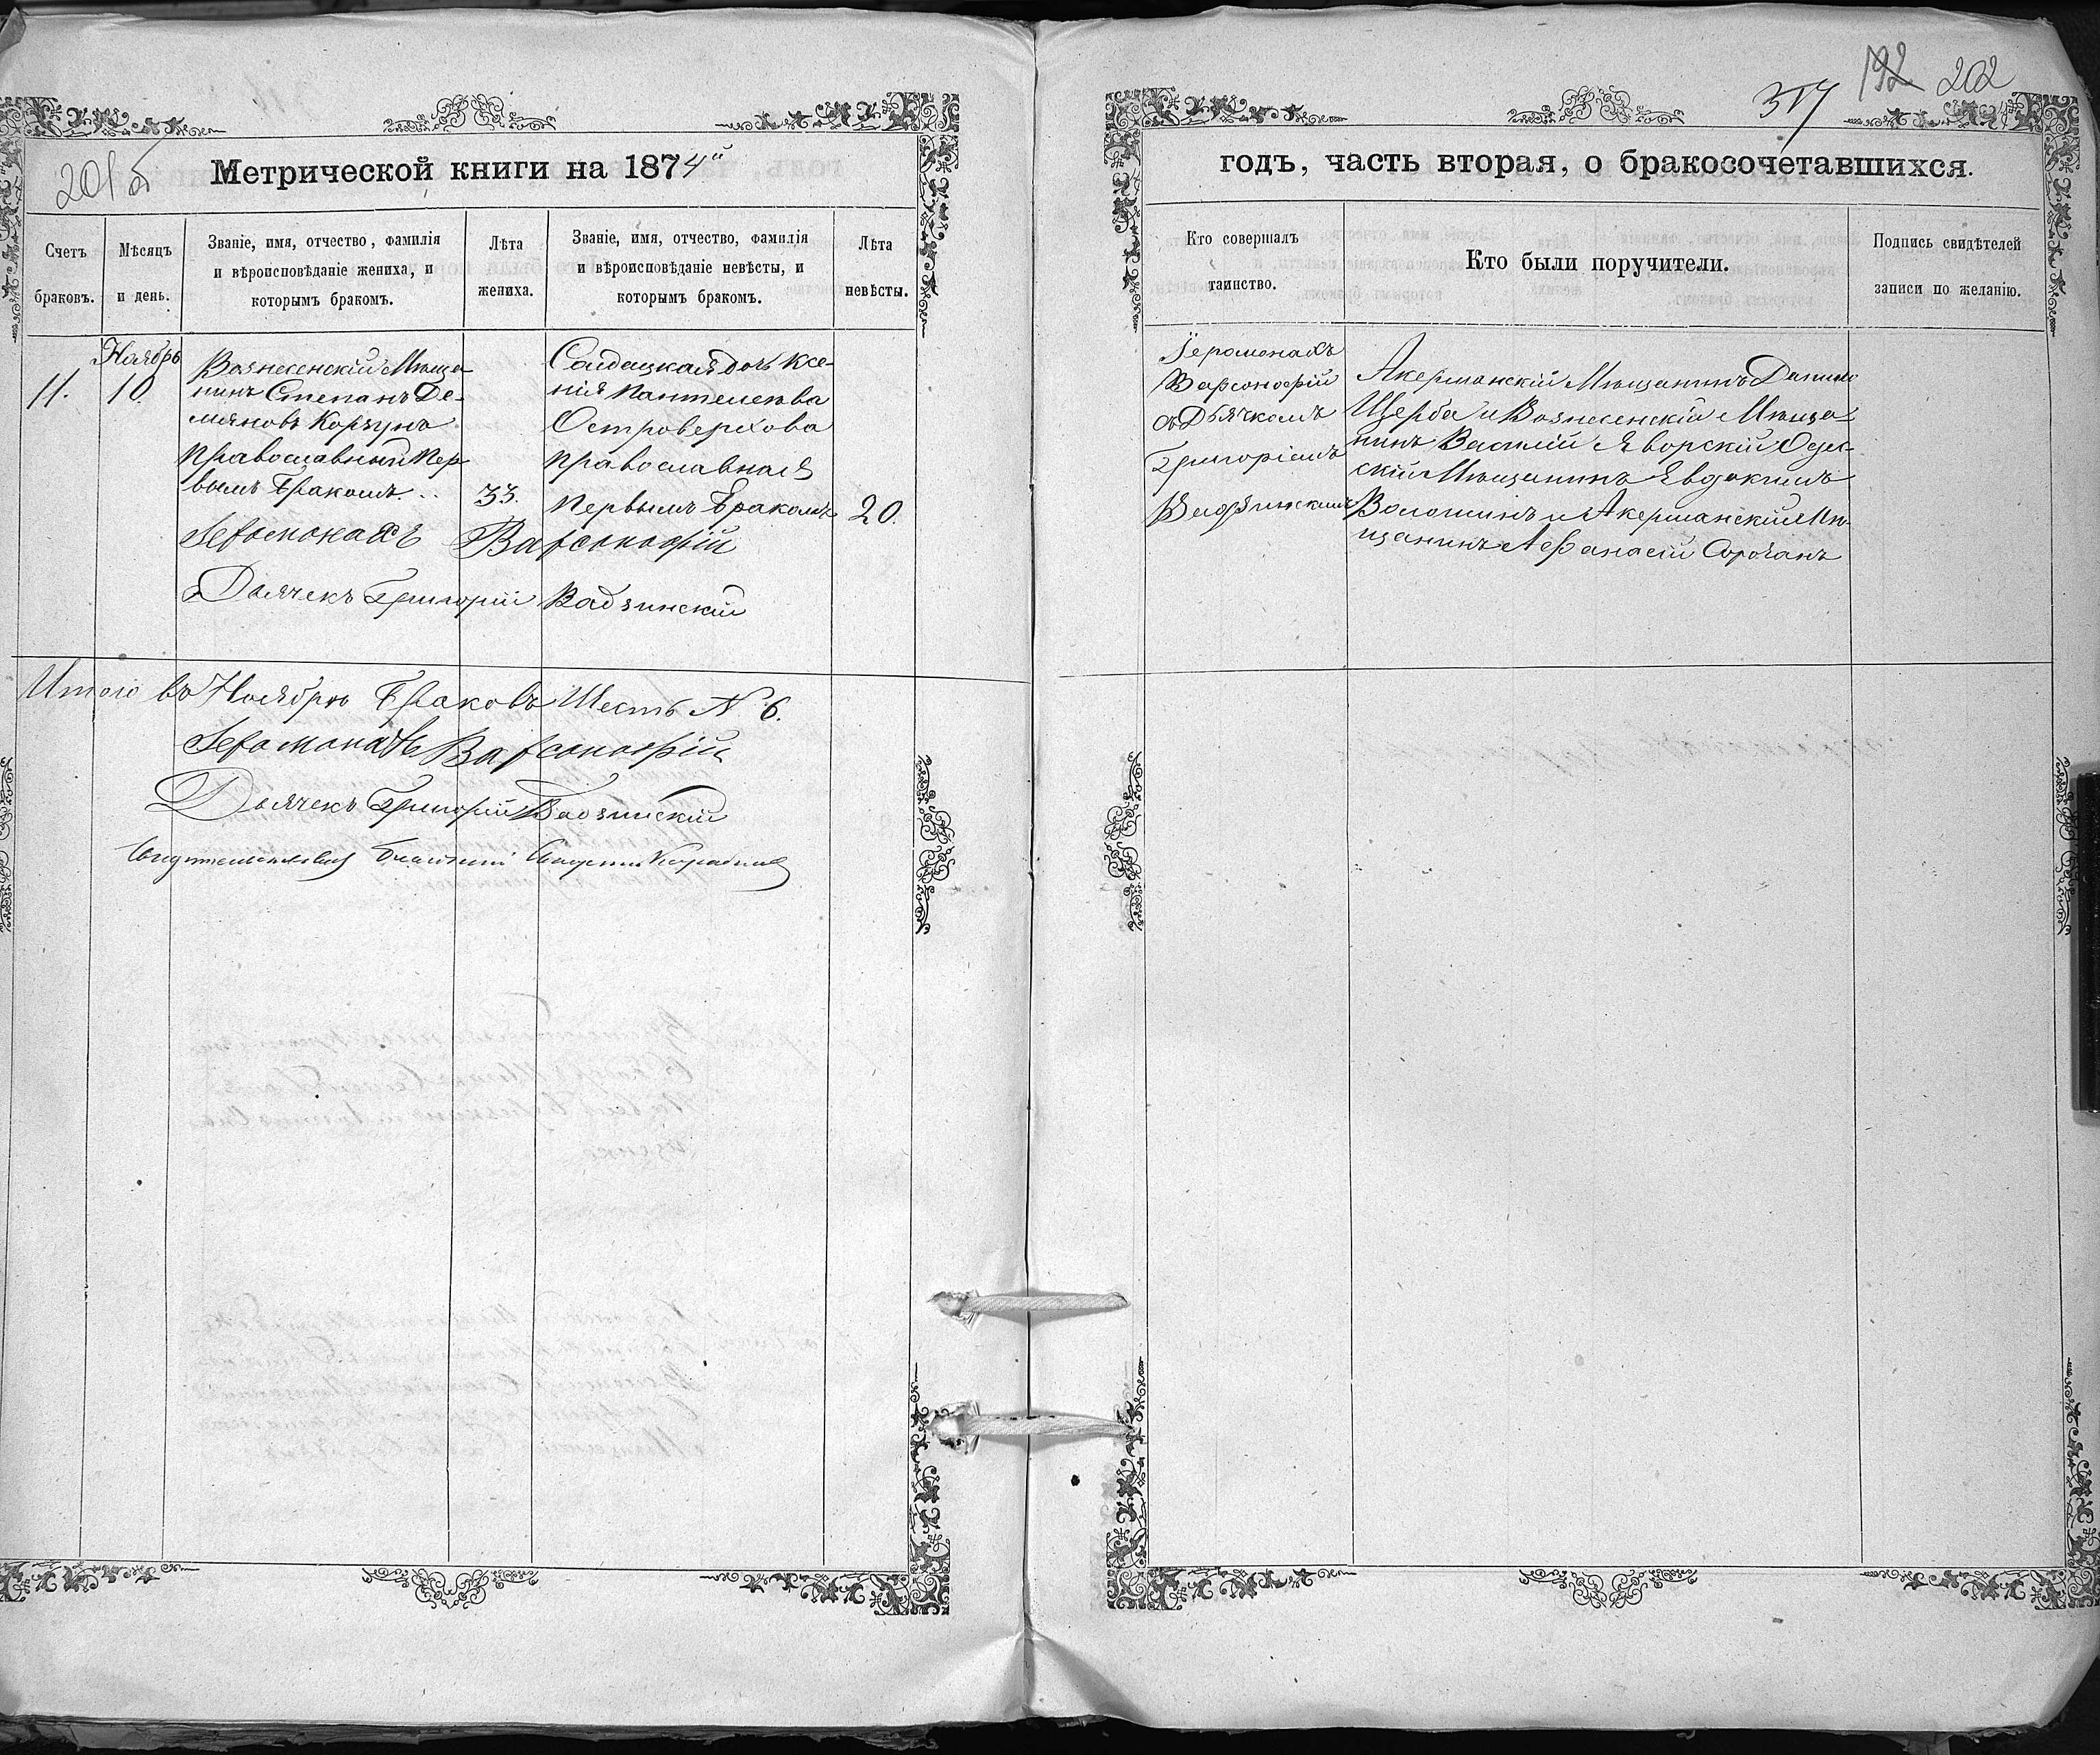 201б
Метрической книги на 1874й
Счетъ браковъ.
Мѣсяцъ и день.
Званіе, имя, отчество, фамилія
и вѣроисповѣданіе жениха, и
которымъ бракомъ.
Лѣта жениха.
Званіе, имя, отчество, фамилія
и вѣроисповѣданіе невѣсты, и
которымъ бракомъ.
Лѣта невѣсты.
11.
Ноябрь
10
Вознесенскій Мѣща-
нинъ Степанъ Де-
мяновъ Корзунъ
православный пер
вымъ бракомъ.
33.
Солдацкая дочь Ксе-
нія Пантелеева
Островерхова
православная
первымъ бракомъ
20.
Іеромонахъ Варсонофій
Дьячекъ Григорій Вадзинскій
Итого въ Ноябрѣ браковъ Шесть № 6.
Іеромонахъ Варсонофій
Дьячекъ Григорій Вадзинскій
192 202
317
годъ, часть вторая, о бракосочетавшихся.
Кто совершалъ
таинство.
Кто были поручители.
Подпись свидѣтелей
записи по желанію.
Іеромонахъ
Варсонофій
съ Дьячкомъ
Григоріемъ
Вадзинскимъ
Акерманскій Мѣщанинъ Данило
Щерба и Вознесенскій Мѣща-
нинъ Василій Яворскій Одес-
скій Мѣщанинъ Евдокимъ
Волошинъ и Акерманскій Мѣ-
щанинъ Афанасій Сорочанъ